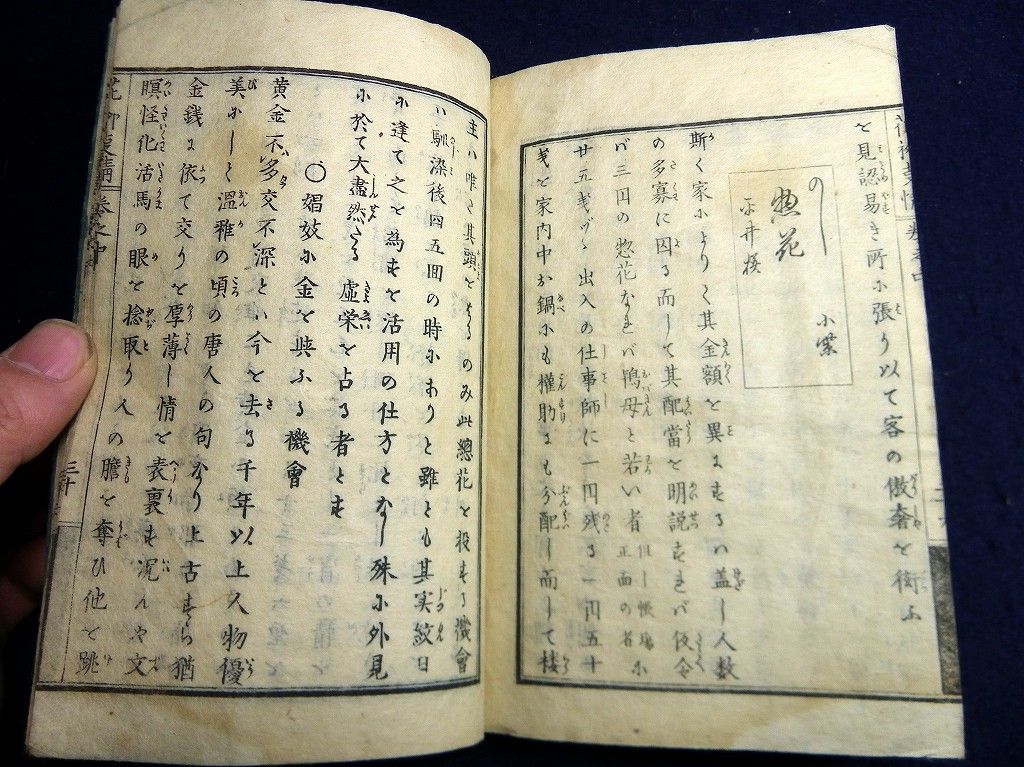 を見認易き所に張り以て客の傲奢を衒ふ
のし
惣花
小紫
平井様
斯く家によりく其金額を異にするハ蓋し人数
の多寡に因る而して其配當を明説すれバ仮令
バ三円の惣花なれバ鴇母と若い者正面の者但し帳場に
廿五銭ヅヽ出入の仕事師に一円残る一円五十
銭を家内中お鍋にも權助にも分配し而して樓
主ハ唯く其頭をはるのみ此總花を投する機會
ハ馴染後四五回の時にありと雖とも其実紋日
に逢て之を為すを活用の仕方となし殊に外見
に於て大盡然たる虚栄を占る者とす
〇娼妓に金を與ふる機會
黄金不多交不深とハ今を去る千年以上人物優
美にして温雅の頃の唐人の句なり上古すら猶
金銭に依て交りを厚薄し情を表裏す况んや文
瞑怪化活馬の眼を捻取り人の膽を奪ひ他を跳
花柳事情 巻之中
三十